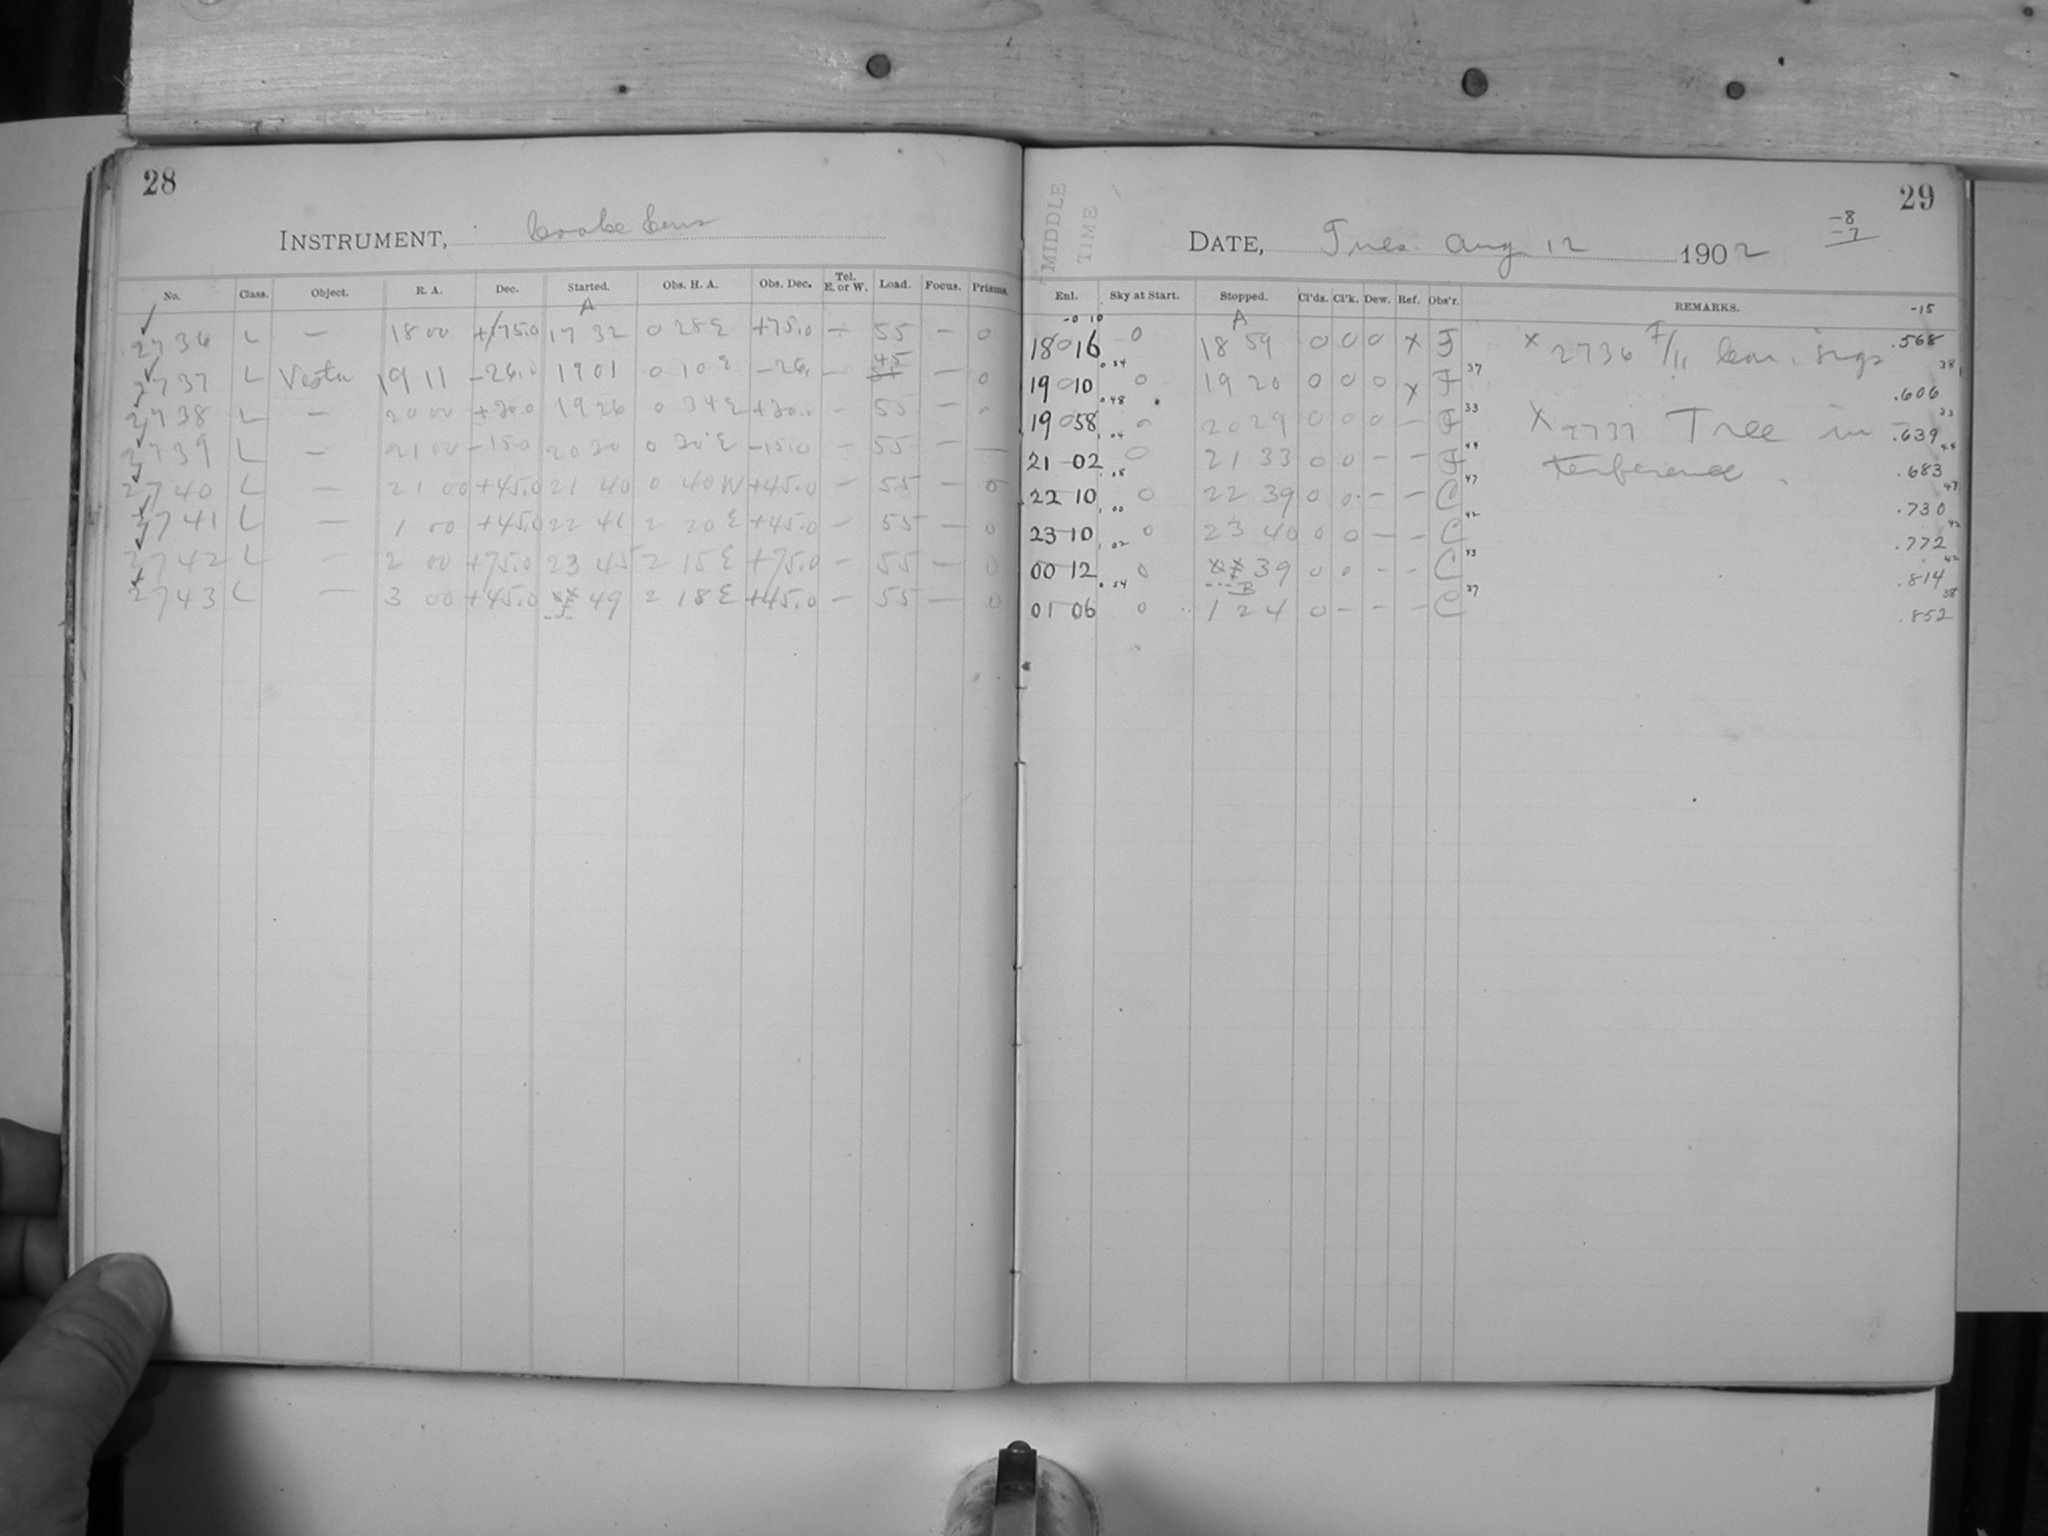 28
INSTRUMENT, Cooke Lens
No. Class. Object. R. A. Dec. Started. Obs. H. A. Obs. Dec. Tel. E. or W. Load. Focus. Prisms.
A
2736 L — 18 00 +75.0 17 32 0 28 E +75.0 — 55 — 0
2737 L Vesta 19 11 -26.0 19 01 0 10 E -26. — 45 — 0
2738 L — 20 00 +30.0 19 26 0 34 E +30.0 — 55 — 0
2739 L — 21 00 -15.0 20 30 0 30 E -15.0 — 55 — —
2740 L — 21 00 +45.0 21 40 0 40 W +45.0 — 55 — 0
2741 L — 1 00 +45.0 22 41 2 20 E +45.0 — 55 — 0
2742 L — 2 00 +75.0 23 45 2 15 E +75.0 — 55 — 0
2743 L — 3 00 +45.0 49 2 18 E +45.0 — 55 — 0
29
MIDDLE TIME
DATE, Tues. Aug 12 1902
-8
-7
-15
Enl. Sky at Start. Stopped. Cl'ds. Cl'k. Dew. Ref. Obs'r. REMARKS.
-0 10 A
18 16 0 18 59 0 0 0 x F x 2736 F/11 .568
0.54 37 38
19 10 0 19 20 0 0 0 x F .606
0.48 33 33
19 58 0 20 29 0 0 0 — F x 2737 Tree in- .639
1.04 44 44
21 02 0 21 33 0 0 — — F terference. .683
1.8 47 47
22 10 0 22 39 0 0 — — C .730
1.00 42 42
23 10 0 23 40 0 0 — — C .772
1.02 43 42
00 12 0 39 0 0 — — C .814
0.54 B 37 38
01 06 0 1 24 0 — — — C .852